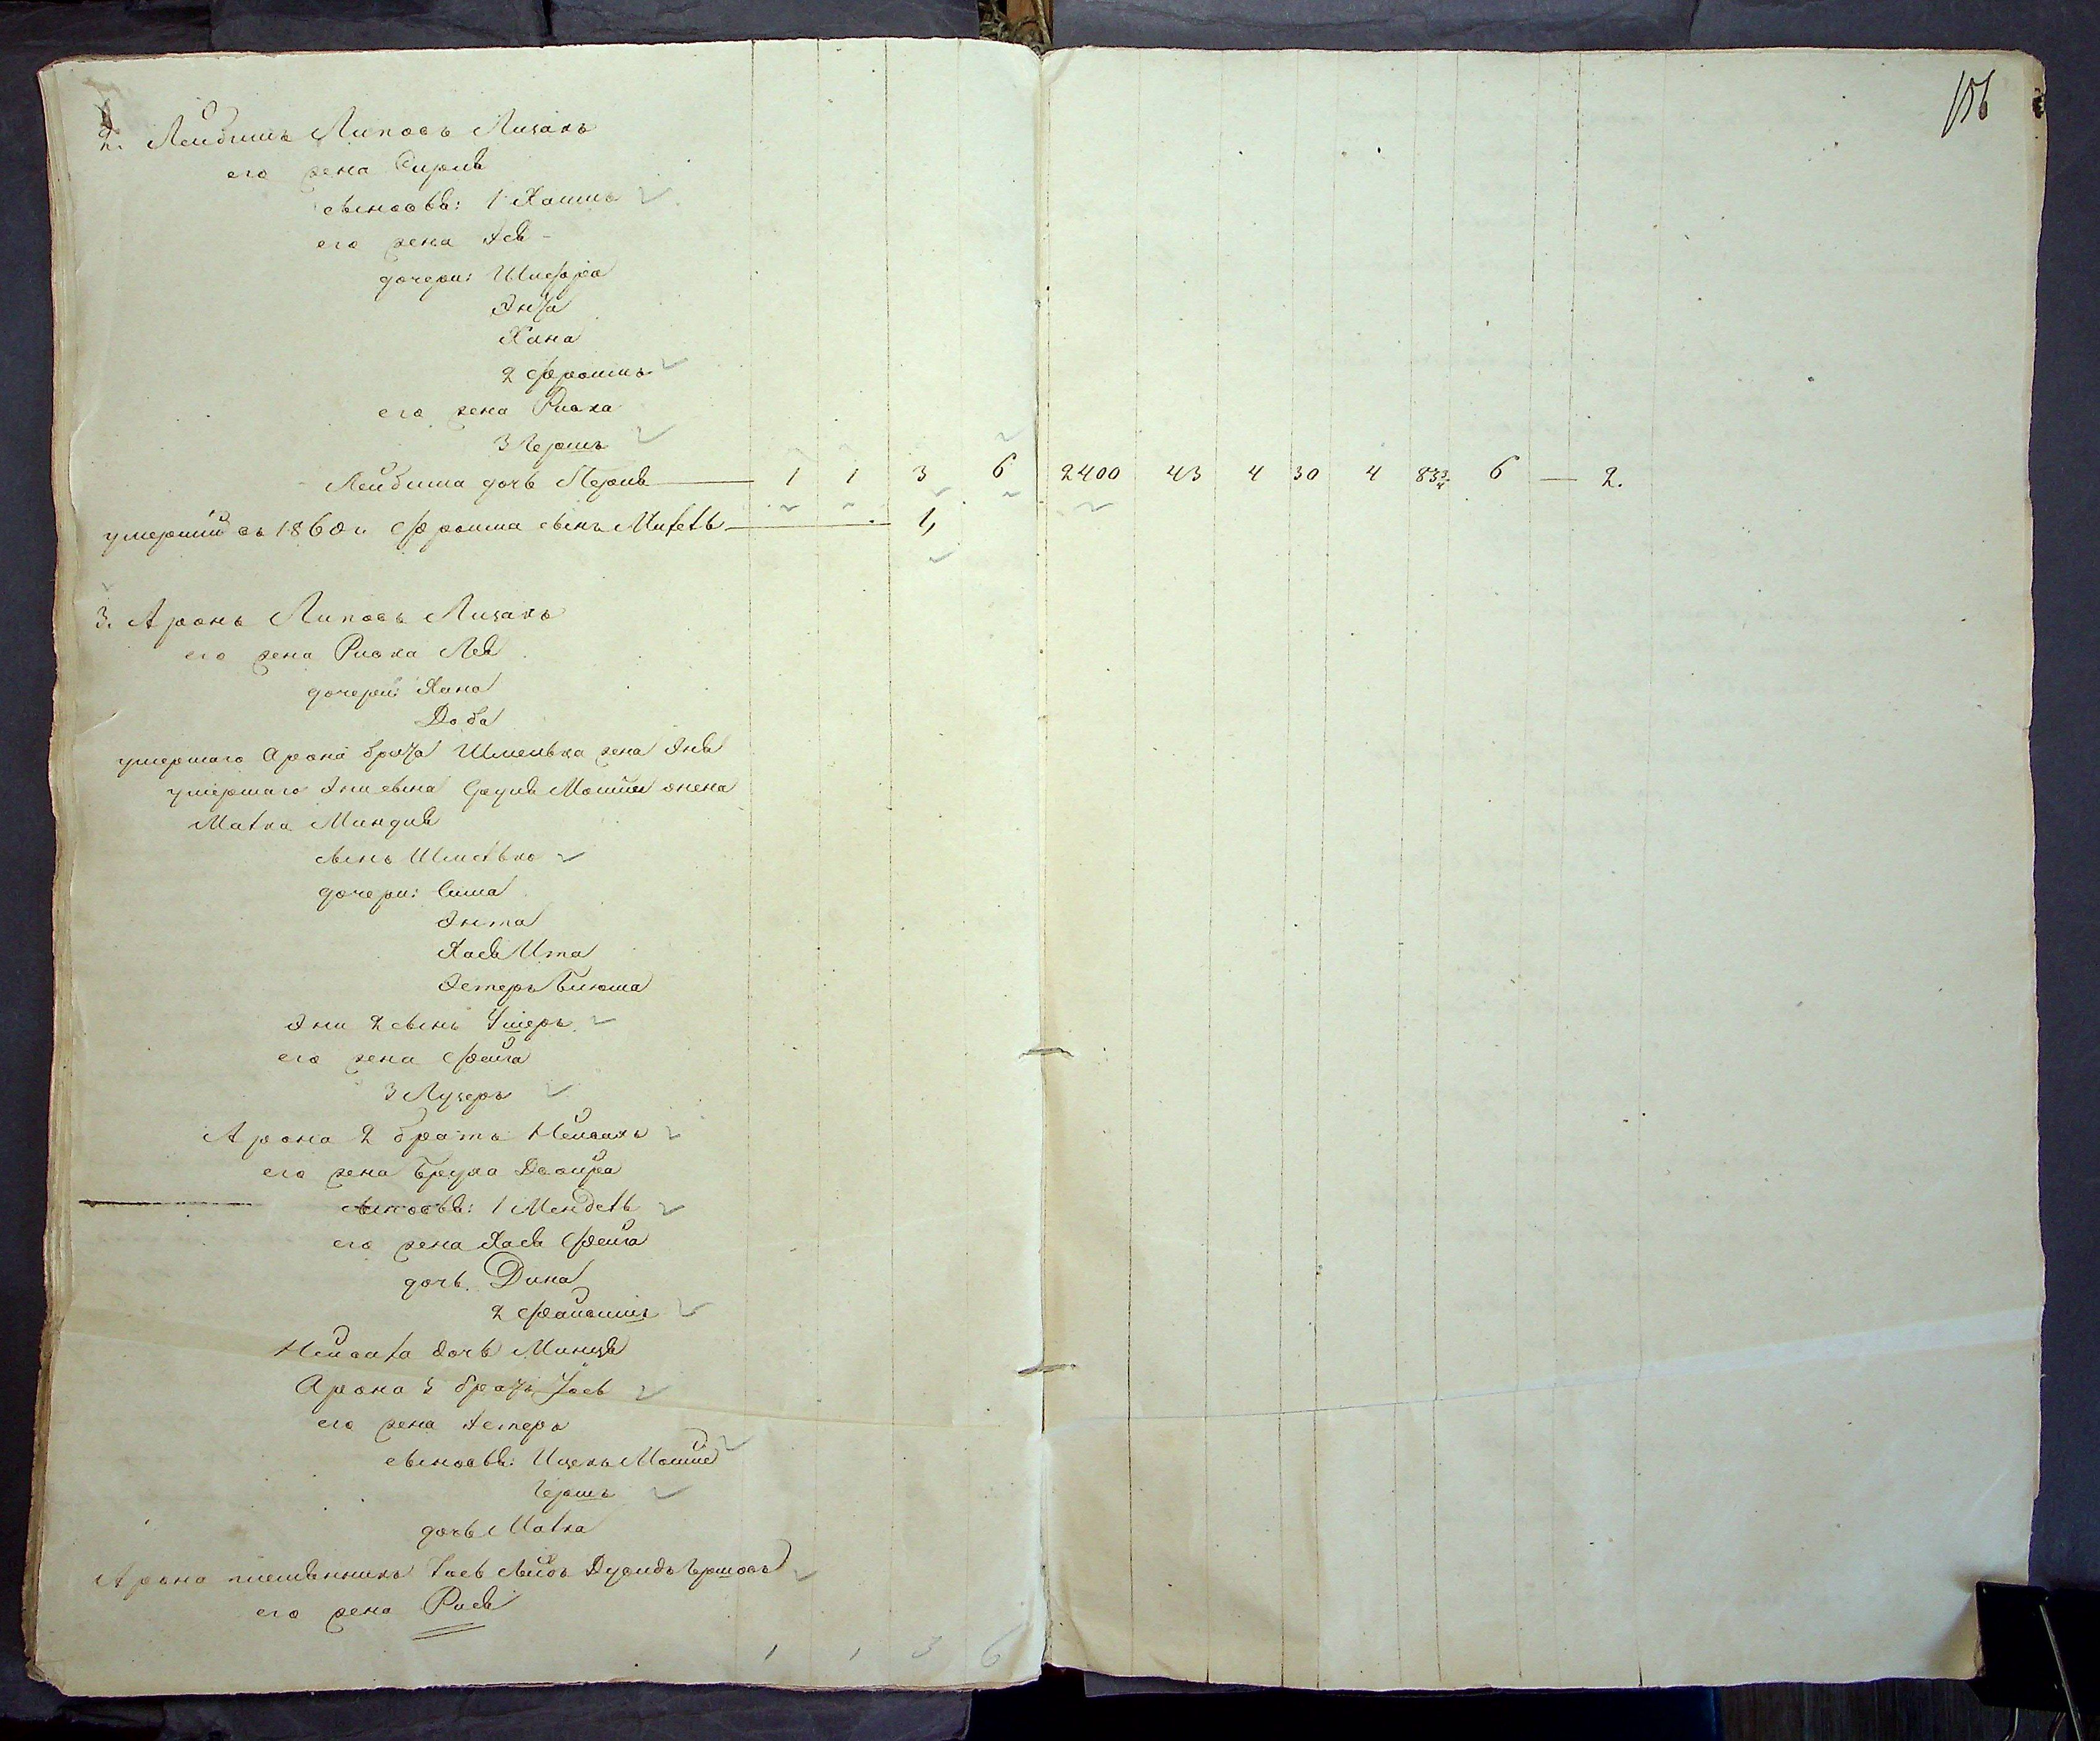 156
2. Лейбишъ Липовъ Лизакъ
его жена Сирля
сыновья: 1 Хаимъ
его жена Ася
дочери: Шифра
Энта
Хана
2 Фроимъ
его жена Ривка
3 Гершъ
Лейбиша дочь Перля — 1 1 3 6 2400 43 4 30 4 83¾ 6 — 2.
умерший въ 1860 г. Фроима сынъ — 1,
3. Аронъ Липовъ Лизакъ
его жена Ривка Лея
дочери: Хана
Доба
умершаго Арона брата Шмелька жена Эня
умершаго Эни сына Мошка жена
Малка Миндля
сынъ Шмелько
дочери: Сима
Энта
Хая Ита
Эстеръ Блюма
Эни 2 сынъ Ушеръ
его жена Фейга
3 Лузеръ
Арона 2 братъ Нейвахъ
его жена Бруха Двойра
сыновья: 1 Мендель
его жена Хая Фейга
дочь Дина
2 Файвишъ
дочь Минця
Арона 3 братъ Іосъ
его жена Эстеръ
сыновья: Ицекъ Мошке
Гершъ
дочь Малка
Арона племянникъ Дувидъ Гершовъ
его жена Рися
1 1 3 6